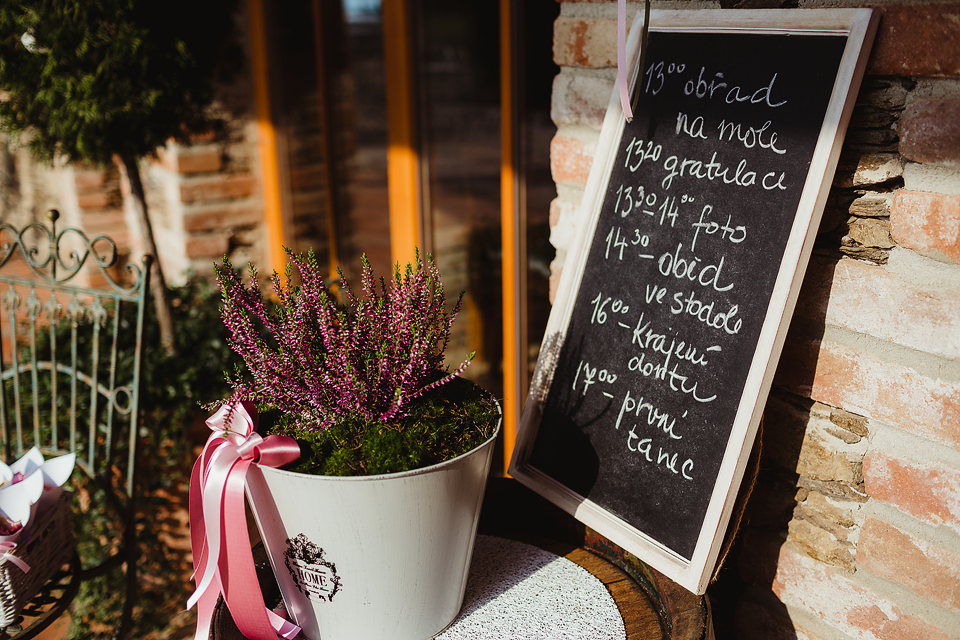 13⁰⁰ obřad
na mole
13²⁰ gratulací
13³⁰-14⁰⁰ foto
14³⁰ - oběd
ve stodole
16⁰⁰ - Krájení
dortu
17⁰⁰ - první
tanec
HOME